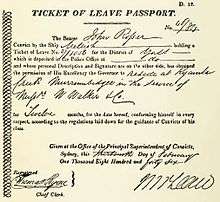 D. 12.
TICKET OF LEAVE PASSPORT.
The Bearer John Roper
Convict by the Ship holding a
Ticket of Leave No. for the District of
which is deposited at the Police Office at do
and whose personal Description and Signature are on the other side, has obtained
the permission of His Excellency the Governor to
in the service of
Messrs W. Walker & Co.
for Twelve
months, for the date hereof, conforming himself in every
respect, according to the regulations laid down for the guidance of Convicts of his
class.
Given at the Office of the Principal Superintendent of Convicts,
Sydney, this Thirteenth Day of February
One Thousand Eight Hundred and forty six
Registered
Chief Clerk.